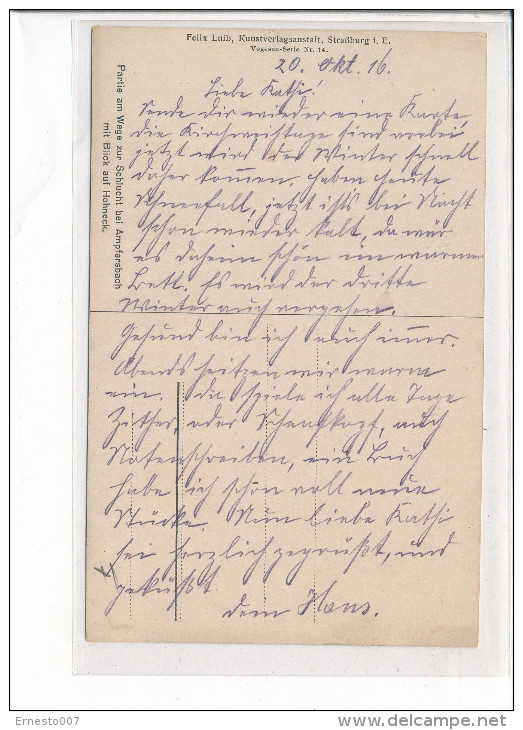 Felix Luib, Kunstverlagsanstalt, Straßburg i. E.
Vogesen-Serie Nr. 14.
20. Okt. 16.
Liebe Kathi!
Sende dir wieder eine Karte
die Kirchweihtage sind vorbei
jetzt wird der Winter schnell
daher kommen. Haben heute
Schneefall, jetzt ists bei Nacht
schon wieder kalt, da wär
es daheim schön im warmen
Bett. Es wird der dritte
Winter auch vergehen.
Gesund bin ich auch immer.
Abends heitzen wir warm
ein. Da spiele ich alle Tage
Zither, oder Schaafkopf, auch
Notenschreiben, ein Buch
habe ich schon voll neue
Stücke. Nun liebe Kathi
sei herzlich gegrüßt, und
geküßt
dein Hans.
Partie am Wege zur Schlucht bei Ampfersbach
mit Blick auf Hohneck.
Ernesto007
http://www.delcampe.net